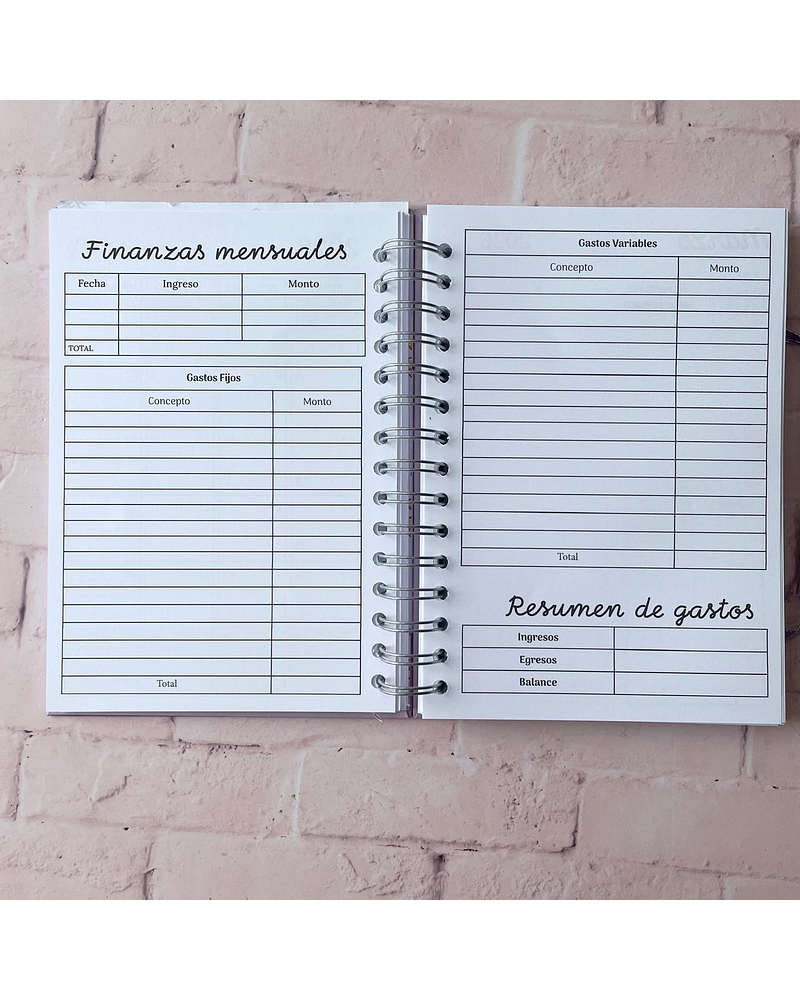 Finanzas mensuales
Fecha Ingreso Monto
TOTAL
Gastos Fijos
Concepto Monto
Total
Gastos Variables
Concepto Monto
Total
Resumen de gastos
Ingresos
Egresos
Balance